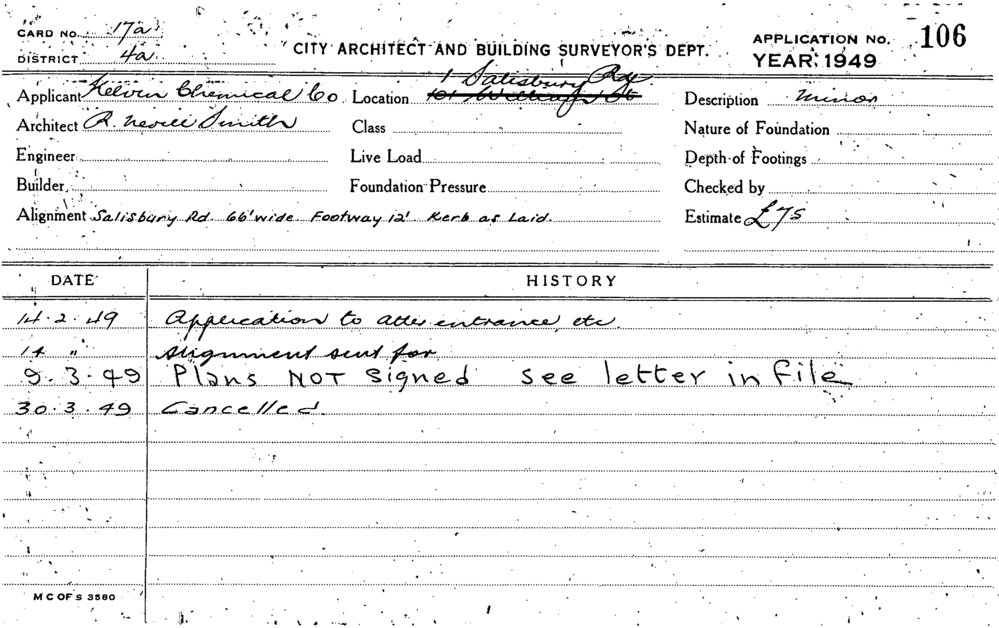 CARD NO. 17a
DISTRICT 4a
CITY ARCHITECT AND BUILDING SURVEYOR'S DEPT.
APPLICATION NO. 106
YEAR: 1949
Applicant Kelvin Chemical Co Location 1 Salisbury Rd
Description Minor
Architect R. Nevill Smith Class
Nature of Foundation
Engineer Live Load
Depth of Footings
Builder Foundation Pressure
Checked by
Alignment Salisbury Rd. 66' wide. Footway 12' Kerb as Laid.
Estimate £75
DATE HISTORY
14.2.49 Application to alter entrance, etc.
14 " Alignment sent for
9.3.49 Plans NOT signed see letter in file
30.3.49 Cancelled.
M C OF S 3580